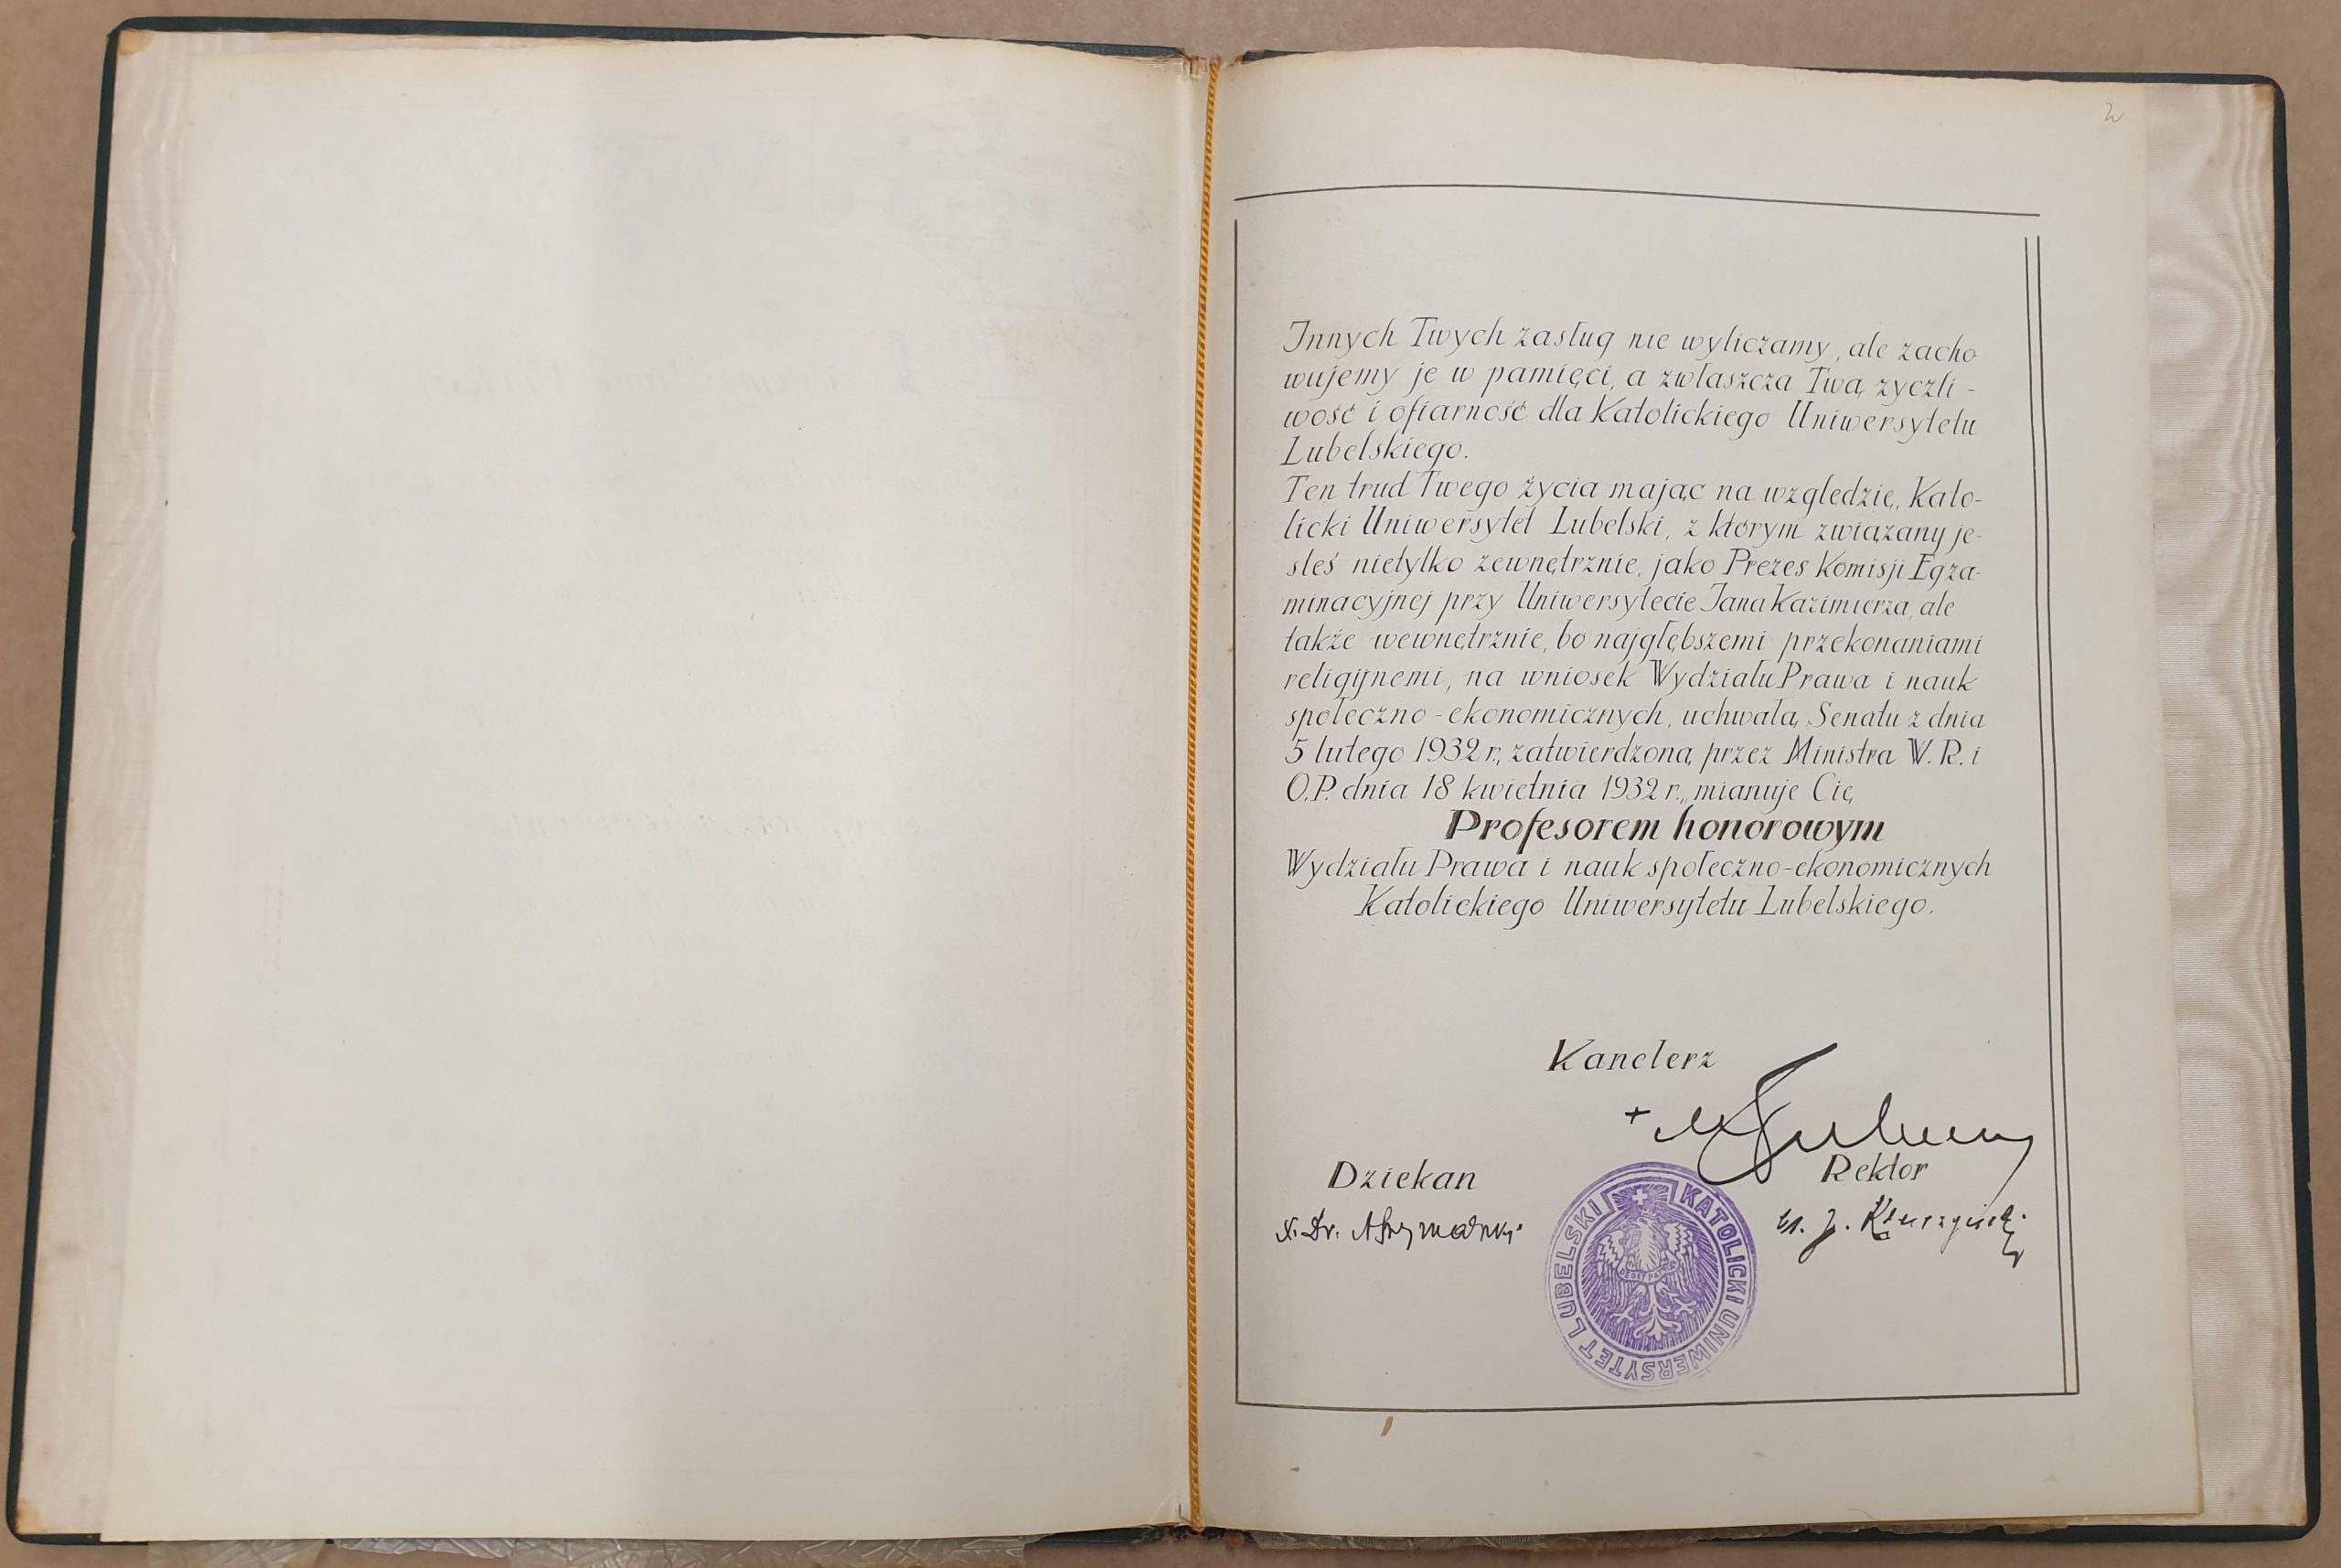 2
Innych Twych zasług nie wyliczamy, ale zacho
wujemy je w pamięci, a zwłaszcza Twą życzli-
wość i ofiarność dla Katolickiego Uniwersytetu
Lubelskiego.
Ten trud Twego życia mając na względzie, Kato-
licki Uniwersytet Lubelski, z którym związany je-
steś nietylko zewnętrznie, jako Prezes Komisji Egza-
minacyjnej przy Uniwersytecie Jana Kazimierza, ale
także wewnętrznie, bo najgłębszemi przekonaniami
religijnemi, na wniosek Wydziału Prawa i nauk
społeczno-ekonomicznych, uchwałą Senatu z dnia
5 lutego 1932 r., zatwierdzoną przez Ministra W. R. i
O. P. dnia 18 kwietnia 1932 r., mianuje Cię
Profesorem honorowym
Wydziału Prawa i nauk społeczno-ekonomicznych
Katolickiego Uniwersytetu Lubelskiego.
Kanclerz
Dziekan
Rektor
X. Dr. A Szymański
KATOLICKI UNIWERSYTET LUBELSKI